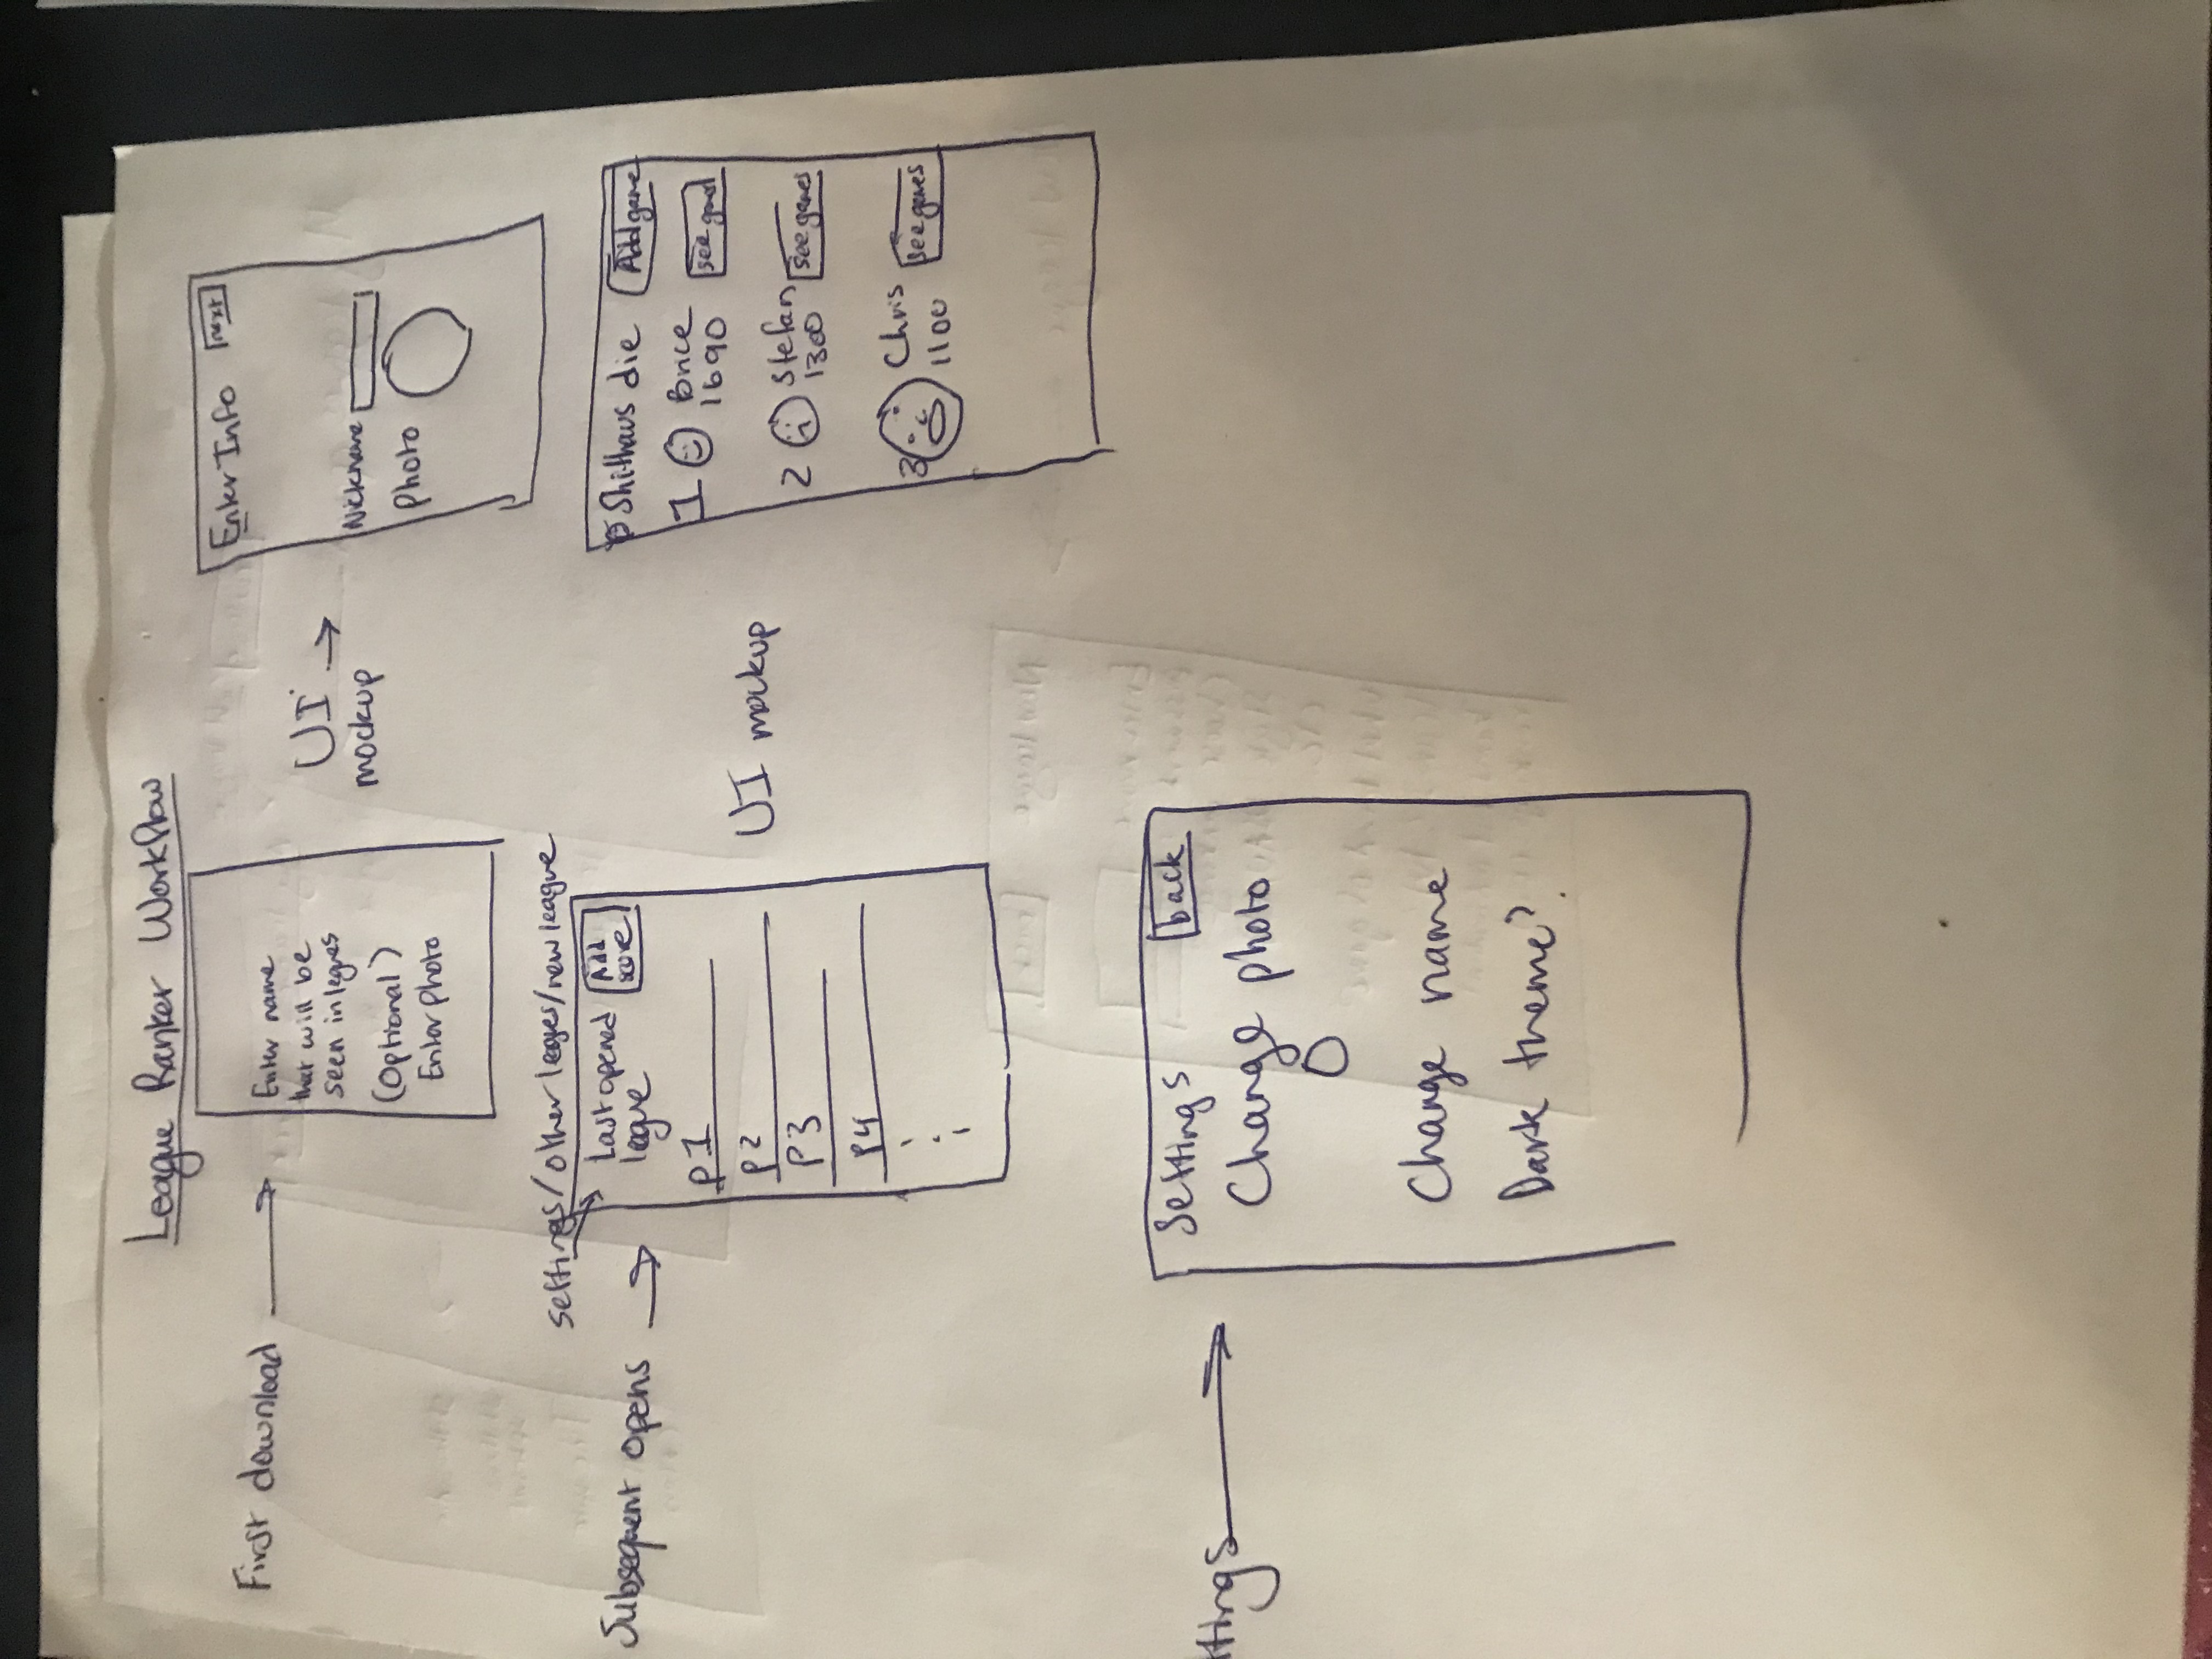 League Ranker Workflow
First download
Enter name
that will be
seen in legues
(Optional)
Enter photo
UI
mockup
Enter Info
next
Nickname
Photo
settings/other legues/new league
Subsequent opens
Last opened
legue
Add
score
P1
P2
P3
P4
UI mockup
Shithaus die
Add game
1 Brice
1690
see games
2 Stefan
1300
see games
3 Chris
1100
see games
ttings
Settings
back
Change photo
Change name
Dark theme?